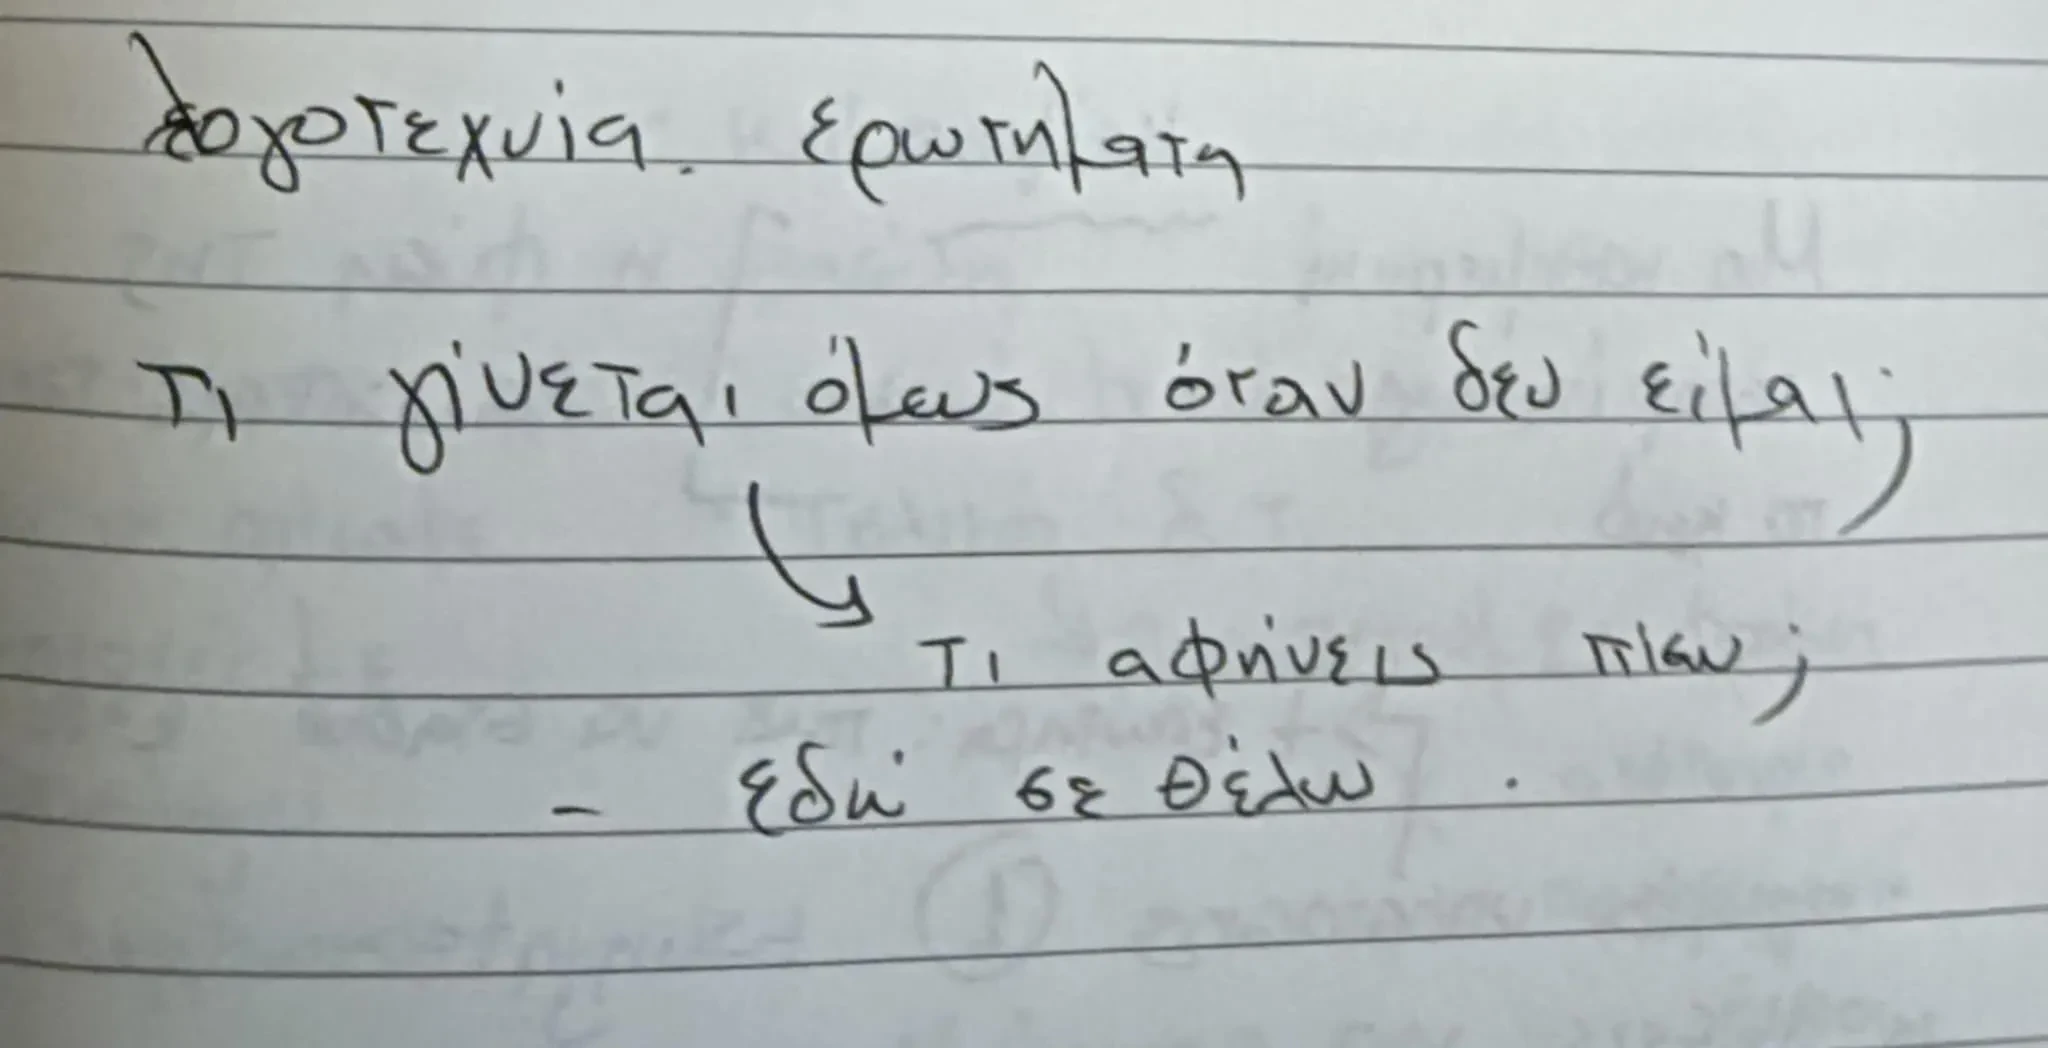 λογοτεχνία. ερωτήματα
τι γίνεται όμως όταν δεν είμαι;
τι αφήνεις πίσω;
- εδώ σε θέλω.